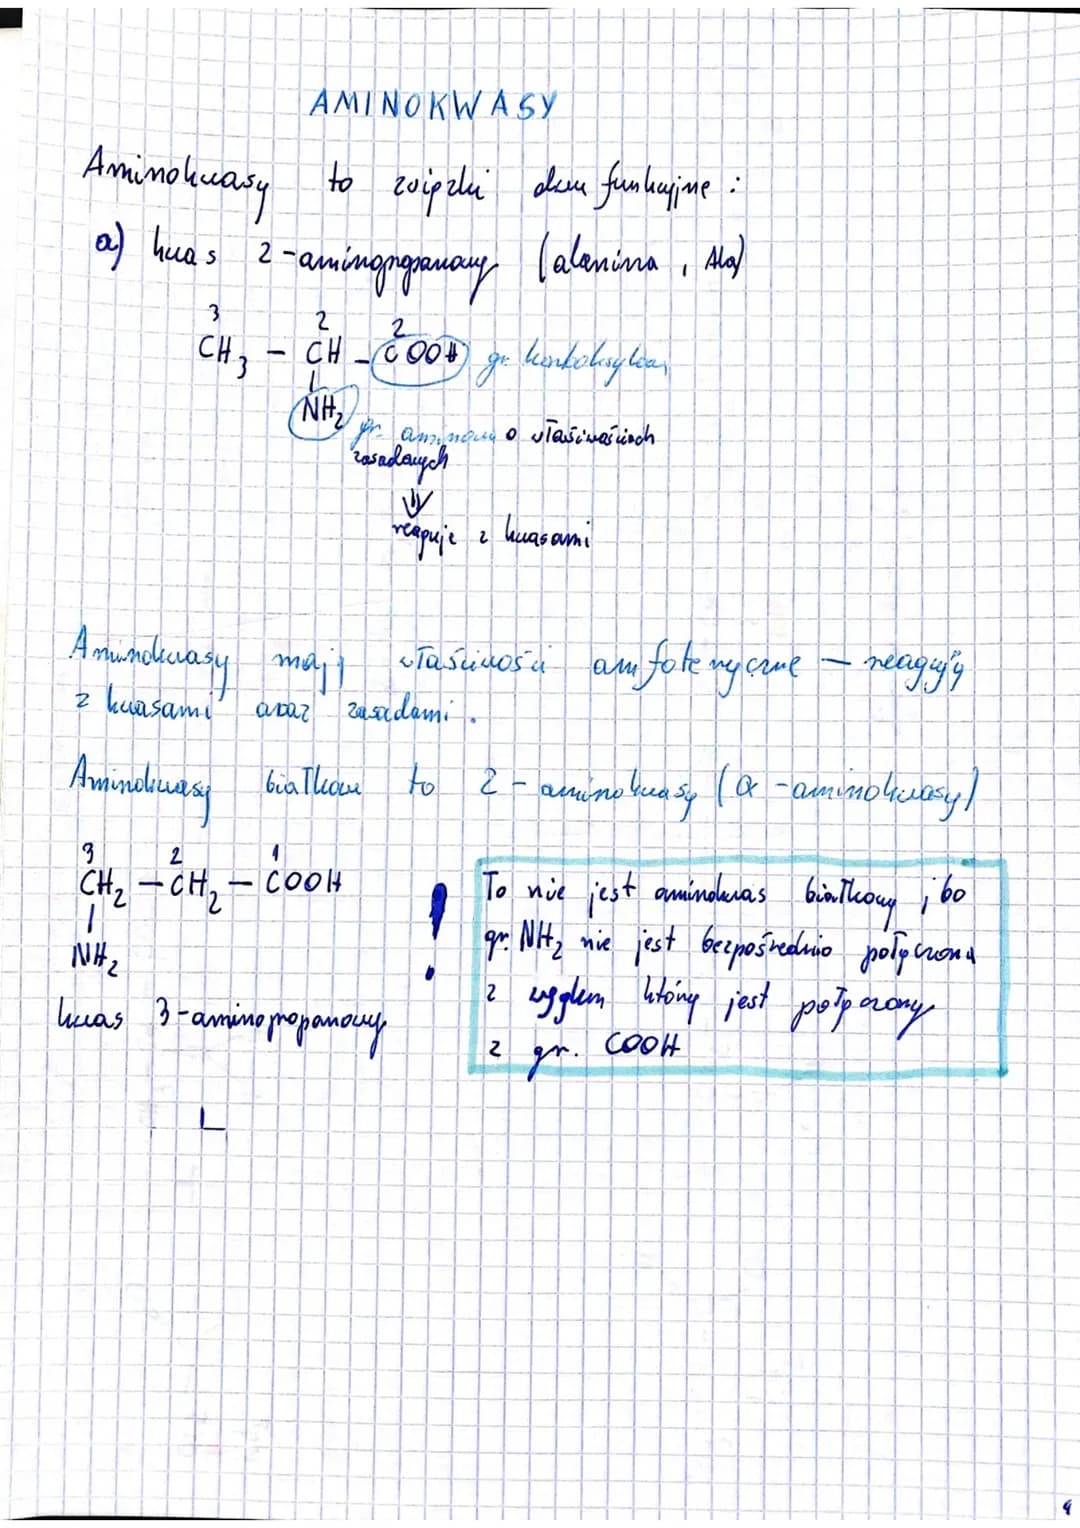 AMINOKWASY
Aminokwasy to związki dwu funkcyjne :
a) kwas 2-aminopropanowy (alanina, Ala)
3 2 2
CH3 - CH - COOH gr. karboksylowa
NH2
gr. aminowa o właściwościach
zasadowych
⇓
reaguje z kwasami
Aminokwasy mają właściwości amfoteryczne - reagują
z kwasami oraz zasadami.
Aminokwasy białkowe to 2 - aminokwasy (α -aminokwasy)
3 2 1
CH2 - CH2 - COOH
NH2
kwas 3-aminopropanowy
!
To nie jest aminokwas białkowy, bo
gr. NH2 nie jest bezpośrednio połączona
z węglem który jest połączony
z gr. COOH
L